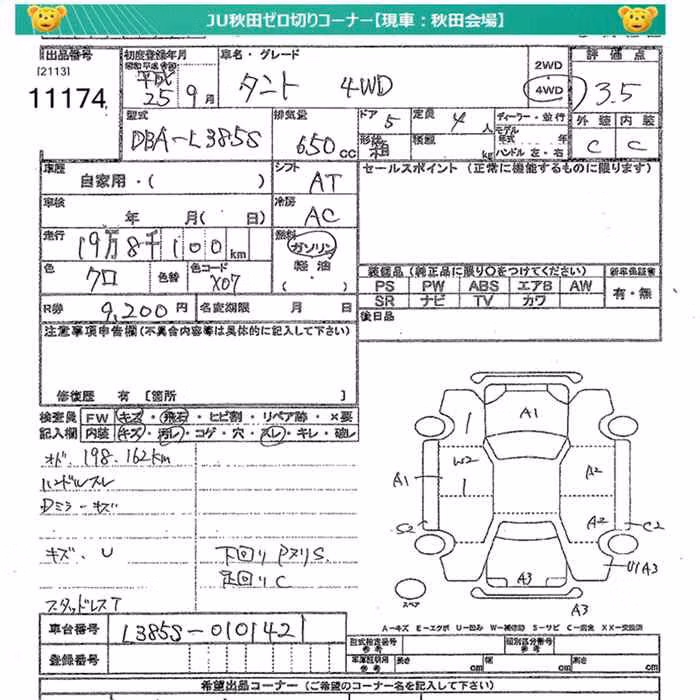 JU秋田ゼロ切りコーナー【現車：秋田会場】
出品番号 初度登録年月 車名・グレード 2WD 評価点
[2113] 平成 タント 4WD 4WD 3.5
11174 25年 9月
型式 排気量 ドア 5 定員 4人 ディーラー・並行 外装 内装
DBA-L385S 650cc 形状 箱 積載 kg モデル年式 年 C C
ハンドル 左・右
車歴 シフト セールスポイント（正常に機能するものに限ります）
自家用・( ) AT
車検 冷房
年 月( 日) AC
走行 燃料
19万8千100km ガソリン
軽油
( ・ )
色 色替 色コード 装備品（純正品に限り○をつけてください） 新車保証書
クロ X07 PS PW ABS エアB AW 有・無
SR ナビ TV カワ
R券 9,200円 名変期限 月 日 後日品
注意事項申告欄（不具合内容等は具体的に記入して下さい）
修復歴 有 [箇所 ]
検査員 FW キズ・飛石・ヒビ割・リペア跡・×要
記入欄 内装 キズ・汚レ・コゲ・穴・スレ・キレ・破レ
オド 198.162km
ハンドルスレ
Dミラーキズ
キズ、U 下回りPヌリS
足回りC
スタッドレスT
A1
W2 A2
A1
S2 A2 C2
U1A3
A3
スペア A3
A-キズ E-エクボ U-凹み W-補修跡 S-サビ C-腐食 XX-交換済
車台番号 L385S-010142
登録番号
型式指定番号 参考 類別区分番号 参考
車庫証明用 参考 長さ cm 幅 cm 高さ cm
希望出品コーナー（ご希望のコーナー名を記入して下さい）